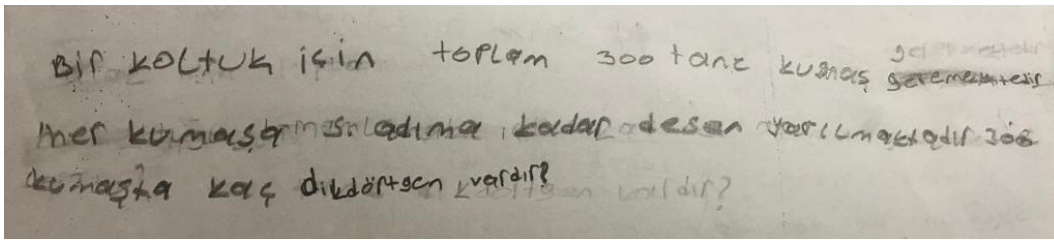 Bir koltuk için toplam 300 tane kumaş geremektedir
Her kumaşa kadar desen yarılmaktadır 300
kumaşta kaç dikdörtgen vardır?